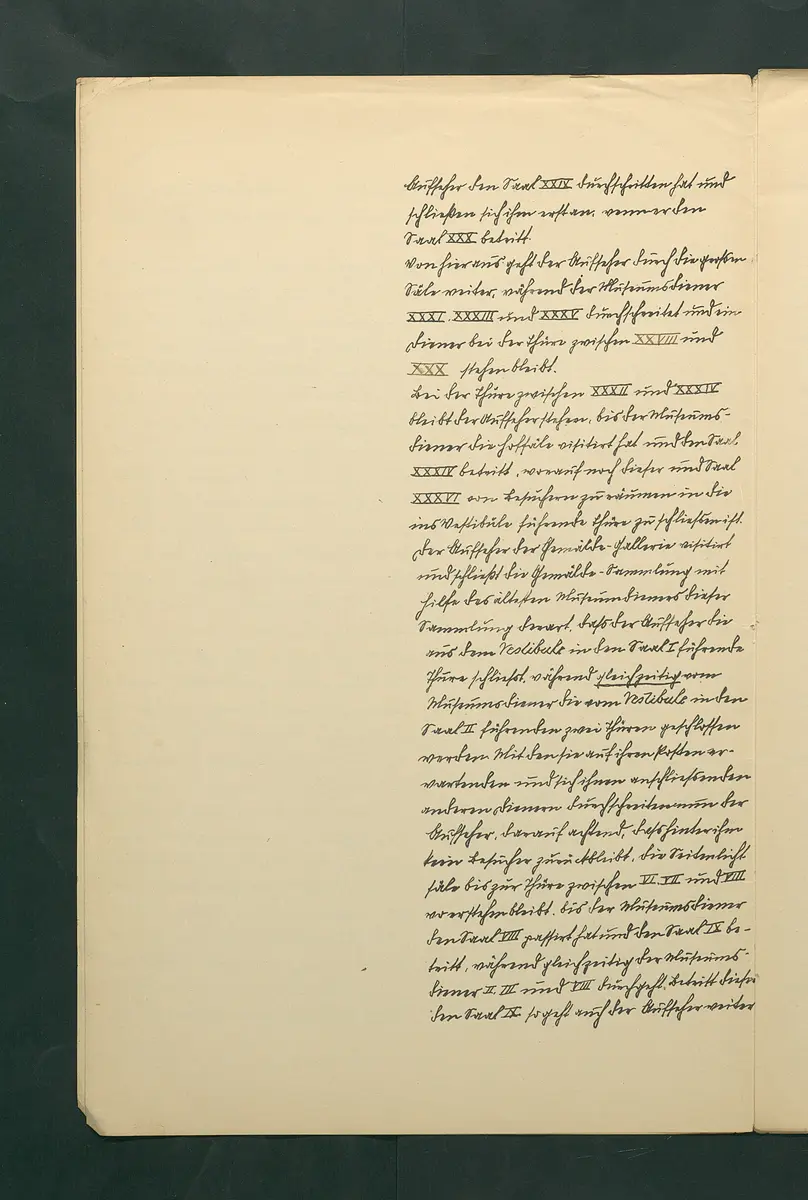 Aufseher den Saal XXIX durchschritten hat und
schließen sich ihm erst an, wenn er den
Saal XXX betritt.
Von hier aus geht der Aufseher durch die großen
Säle weiter, während der Museumsdiener
XXXI, XXXIII und XXXV durchschreitet und ein
Diener bei der Thüre zwischen XXVIII und
XXX stehen bleibt.
Bei der Thüre zwischen XXXII und XXXIV
bleibt der Aufseher stehen, bis der Museums-
diener die Hofsäle visitirt hat und den Saal
XXXIV betritt, worauf noch dieser und Saal
XXXVI von Besuchern zu räumen u die
ins Vestibüle führende Thüre zu schließen ist.
Der Aufseher der Gemälde-Gallerie visitirt
und schließt die Gemälde-Sammlung mit
Hilfe des ältesten Museumdieners dieser
Sammlung derart, daß der Aufseher die
aus dem Vestibule in den Saal I führende
Thüre schließt, während gleichzeitig vom
Museumsdiener die vom Vestibule in den
Saal II führenden zwei Thüren geschlossen
werden. Mit den sie auf ihren Posten er-
wartenden und sich ihnen anschließenden
anderen Dienern durchschreiten nun der
Aufseher, darauf achtend, dass hinter ihm
kein Besucher zurückbleibt, die Seitenlicht
säle bis zur Thüre zwischen VI. VII und VIII
wo er stehen bleibt, bis der Museumsdiener
den Saal VIII passirt hat und den Saal IX be-
tritt, während gleichzeitig der Museums-
diener II. III und VIII durchgeht. Betritt dieser
den Saal IX so geht auch der Aufseher weiter